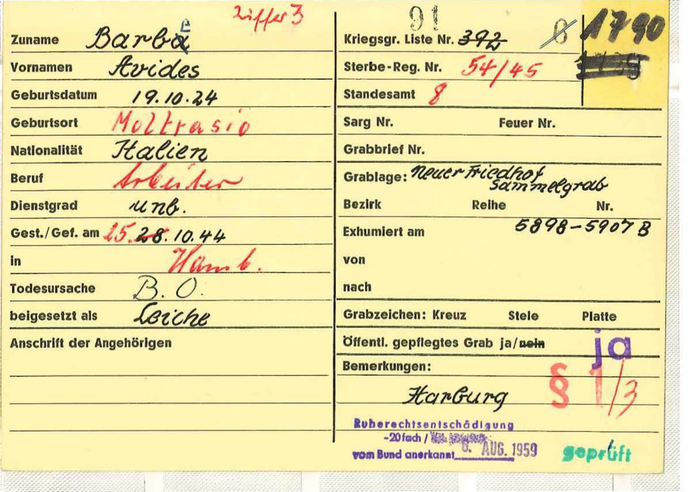 Ziffer 3
Zuname Barbe
Vornamen Avides
Geburtsdatum 19.10.24
Geburtsort Moltrasio
Nationalität Italien
Beruf Arbeiter
Dienstgrad unb.
Gest./Gef. am 25. 28.10.44
in Hamb.
Todesursache B.O.
beigesetzt als Leiche
Anschrift der Angehörigen
91
1790
Kriegsgr. Liste Nr. 392
Sterbe-Reg. Nr. 54/45
Standesamt 8
Sarg Nr. Feuer Nr.
Grabbrief Nr.
Grablage: Neuer Friedhof
Sammelgrab
Bezirk Reihe Nr.
5898-5907 B
Exhumiert am
von
nach
Grabzeichen: Kreuz Stele Platte
Öffentl. gepflegtes Grab ja/nein ja
Bemerkungen:
§ 1/3
Harburg
Ruherechtsentschädigung
-20fach /
vom Bund anerkannt 6. AUG. 1959
geprüft